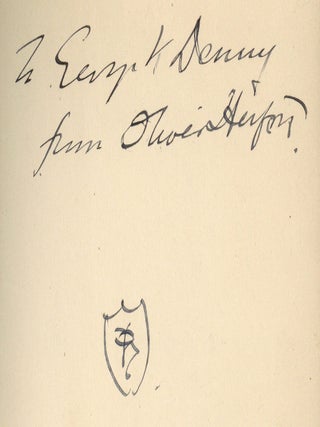 To George H Denny
from Oliver Herford.